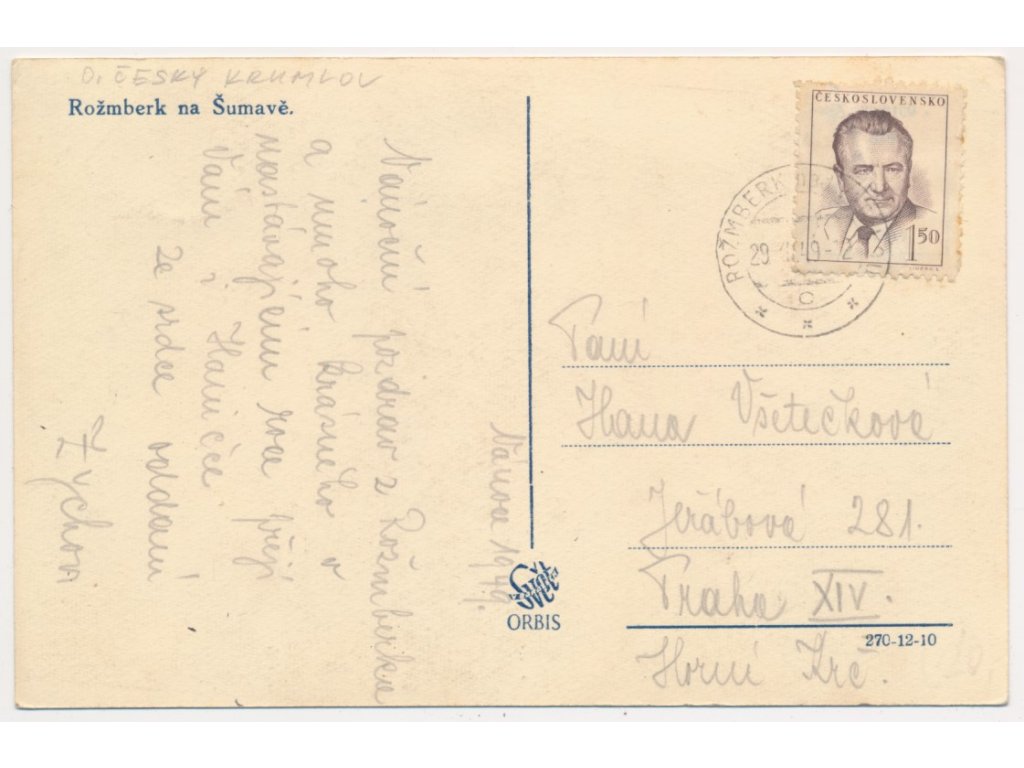 O. ČESKÝ KRUMLOV
Rožmberk na Šumavě.
Vánoční pozdrav z Rožmberku
a mnoho krásného v
nastávajícím roce přejí
Vám i Haničce
ze srdce oddaní
Zychovi
Vánoce 1949.
ČESKOSLOVENSKO
1 50
ROŽMBERK
29
C
Paní
Hana Všetečková
Jeřábová 281.
Praha XIV.
Horní Krč.
ORBIS
270-12-10